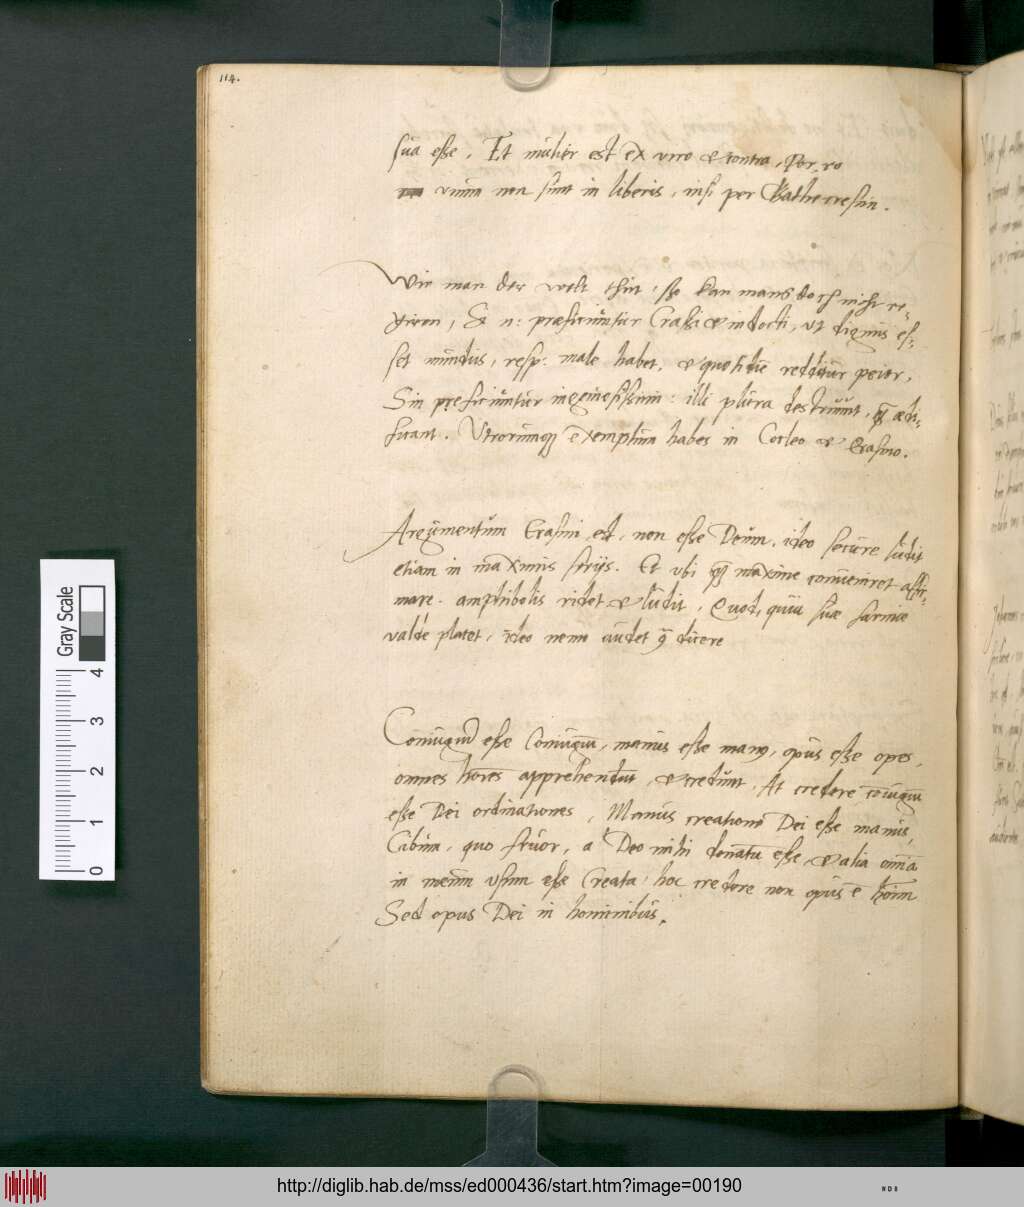 114.
sua esse. Et mulier est ex viro et contra. Por ro
vinum non sunt in liberis, nisi per Kathecresim.
Wie man der welt thut, sso kan mans doch nicht re-
giren, Si n: præficiuntur Crassi et indocti, ut dignus es-
set mundus, resp. male habet, et quotidie redditur peior,
Sin preficiuntur ingeniosissimi: illi plura destruunt, quam ædi-
ficant. Utrorumque exemplum habes in Cocleo et Erasmo.
Argumentum Erasmi est, non esse Deum, ideo secure ludit
etiam in maximis serijs. Et ubi maxime conveniret affir-
mare, amphibolis ridet et ludit, Quod, quia suæ
valde placet, ideo nemo audet dicere
Coniugium esse Coniugium, manus esse manus, opus esse opes,
omnes homines apprehendunt, et credunt, At credere coniugium
esse Dei ordinationes, Manus creatione Dei esse manus,
Cibum, quo fruor, a Deo mihi donatum esse, et alia omnia
in meum usum esse Creata, hoc credere non opus est hominum
Sed opus Dei in hominibus.
Gray Scale
0 1 2 3 4
http://diglib.hab.de/mss/ed000436/start.htm?image=00190